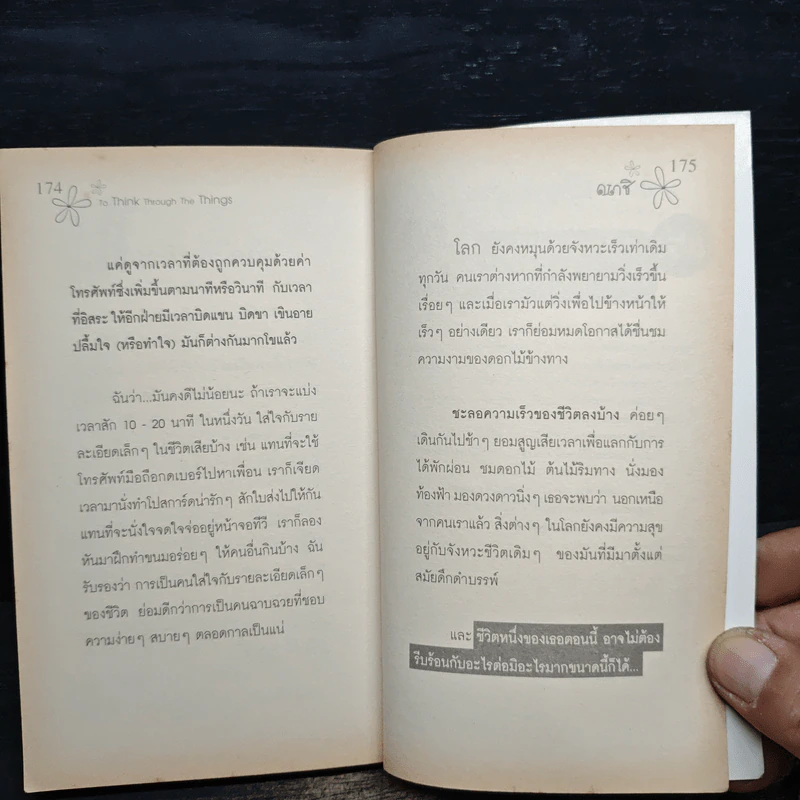 174
To Think Through The Things
แค่ดูจากเวลาที่ต้องถูกควบคุมด้วยค่า
โทรศัพท์ซึ่งเพิ่มขึ้นตามนาทีหรือวินาที กับเวลา
ที่อิสระ ให้อีกฝ่ายมีเวลาบิดแขน บิดขา เขินอาย
ปลื้มใจ (หรือทำใจ) มันก็ต่างกันมากโขแล้ว
ฉันว่า...มันคงดีไม่น้อยนะ ถ้าเราจะแบ่ง
เวลาสัก 10 - 20 นาที ในหนึ่งวัน ใส่ใจกับราย
ละเอียดเล็กๆ ในชีวิตเสียบ้าง เช่น แทนที่จะใช้
โทรศัพท์มือถือกดเบอร์ไปหาเพื่อน เราก็เจียด
เวลามานั่งทำโปสการ์ดน่ารักๆ สักใบส่งไปให้กัน
แทนที่จะนั่งใจจดใจจ่ออยู่หน้าจอทีวี เราก็ลอง
หันมาฝึกทำขนมอร่อยๆ ให้คนอื่นกินบ้าง ฉัน
รับรองว่า การเป็นคนใส่ใจกับรายละเอียดเล็กๆ
ของชีวิต ย่อมดีกว่าการเป็นคนฉาบฉวยที่ชอบ
ความง่ายๆ สบายๆ ตลอดกาลเป็นแน่
175
โลก ยังคงหมุนด้วยจังหวะเร็วเท่าเดิม
ทุกวัน คนเราต่างหากที่กำลังพยายามวิ่งเร็วขึ้น
เรื่อยๆ และเมื่อเรามัวแต่วิ่งเพื่อไปข้างหน้าให้
เร็วๆ อย่างเดียว เราก็ย่อมหมดโอกาสได้ชื่นชม
ความงามของดอกไม้ข้างทาง
ชะลอความเร็วของชีวิตลงบ้าง ค่อยๆ
เดินกันไปช้าๆ ยอมสูญเสียเวลาเพื่อแลกกับการ
ได้พักผ่อน ชมดอกไม้ ต้นไม้ริมทาง นั่งมอง
ท้องฟ้า มองดวงดาวนิ่งๆ เธอจะพบว่า นอกเหนือ
จากคนเราแล้ว สิ่งต่างๆ ในโลกยังคงมีความสุข
อยู่กับจังหวะชีวิตเดิมๆ ของมันที่มีมาตั้งแต่
สมัยดึกดำบรรพ์
และ ชีวิตหนึ่งของเธอตอนนี้ อาจไม่ต้อง
รีบร้อนกับอะไรต่อมิอะไรมากขนาดนี้ก็ได้...